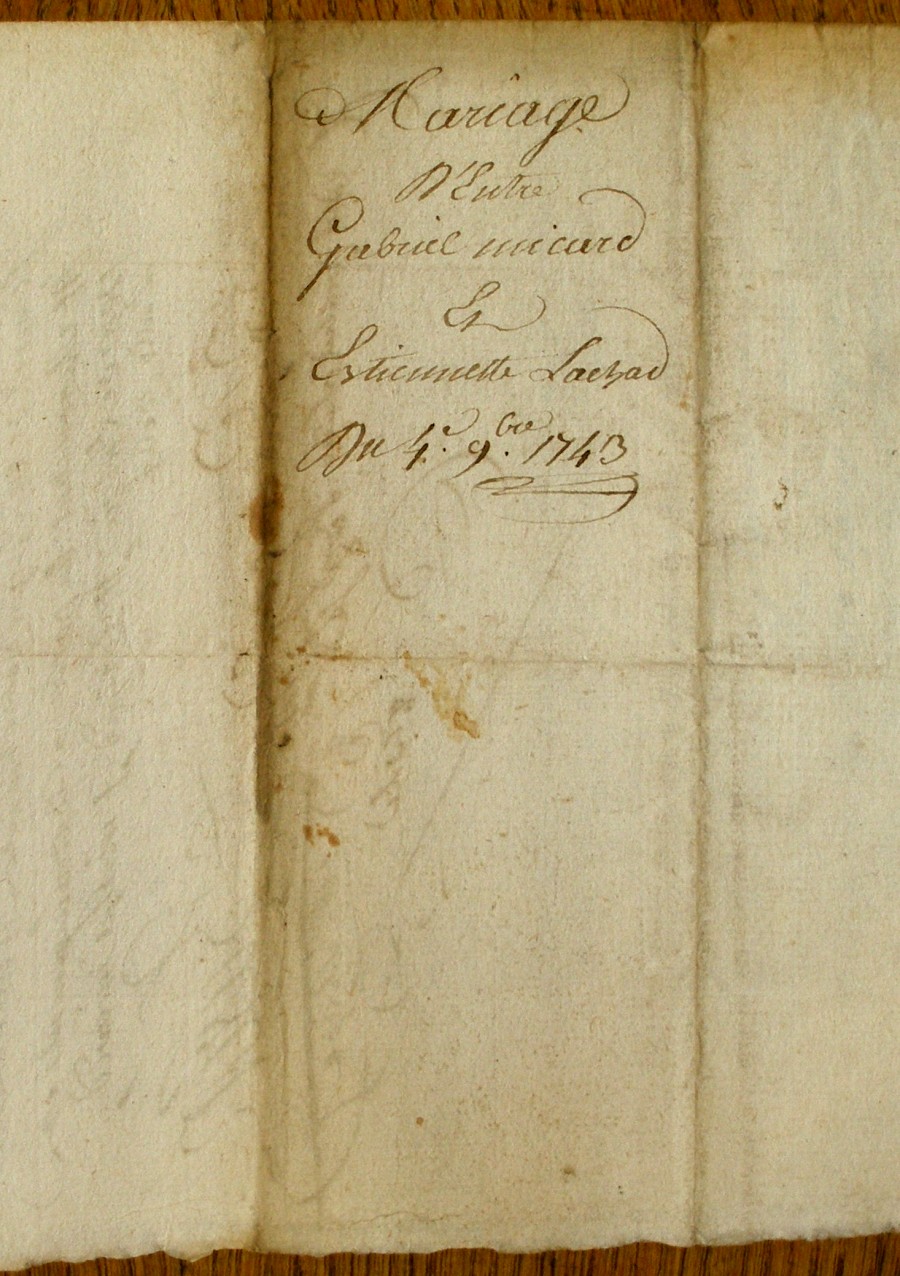 Mariage
D'Entre
Gabriel micard
Et
Estiennette Lachad
Du 4.e 9.bre 1743